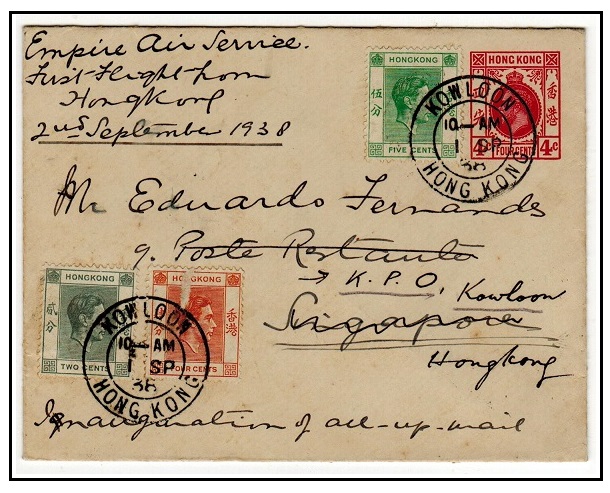 Empire Air Service.
First Flight from
HongKong
2nd September 1938
HONGKONG
伍分
FIVE CENTS
HONG KONG
香港
4c
FOUR CENTS
KOWLOON
10 AM
1 SP
38
HONG KONG
Mr Eduardo Fernandes
Poste Restante
→ K.P.O, Kowloon
Singapore
Hongkong
HONGKONG
貳分
TWO CENTS
HONGKONG
香港
FOUR CENTS
KOWLOON
10 AM
1 SP
38
HONG KONG
Inauguration of all-up-mail